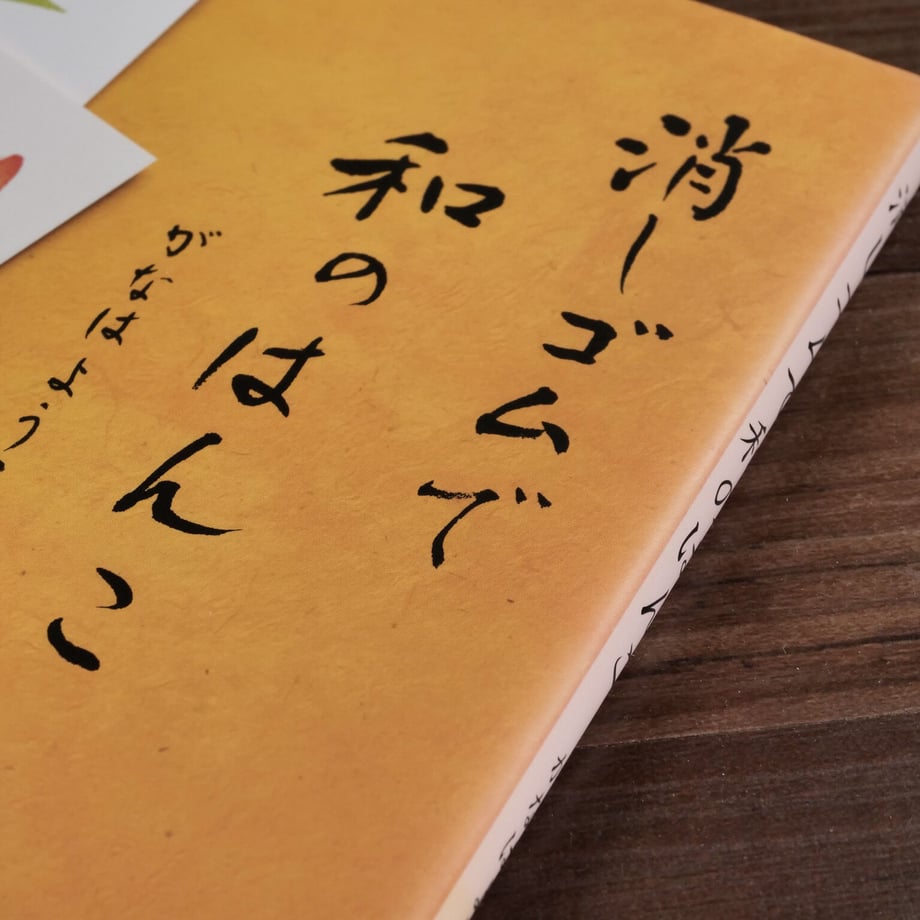 消しゴムで
和のはんこ
がなはよう
消しゴムで和のはんこ がなは